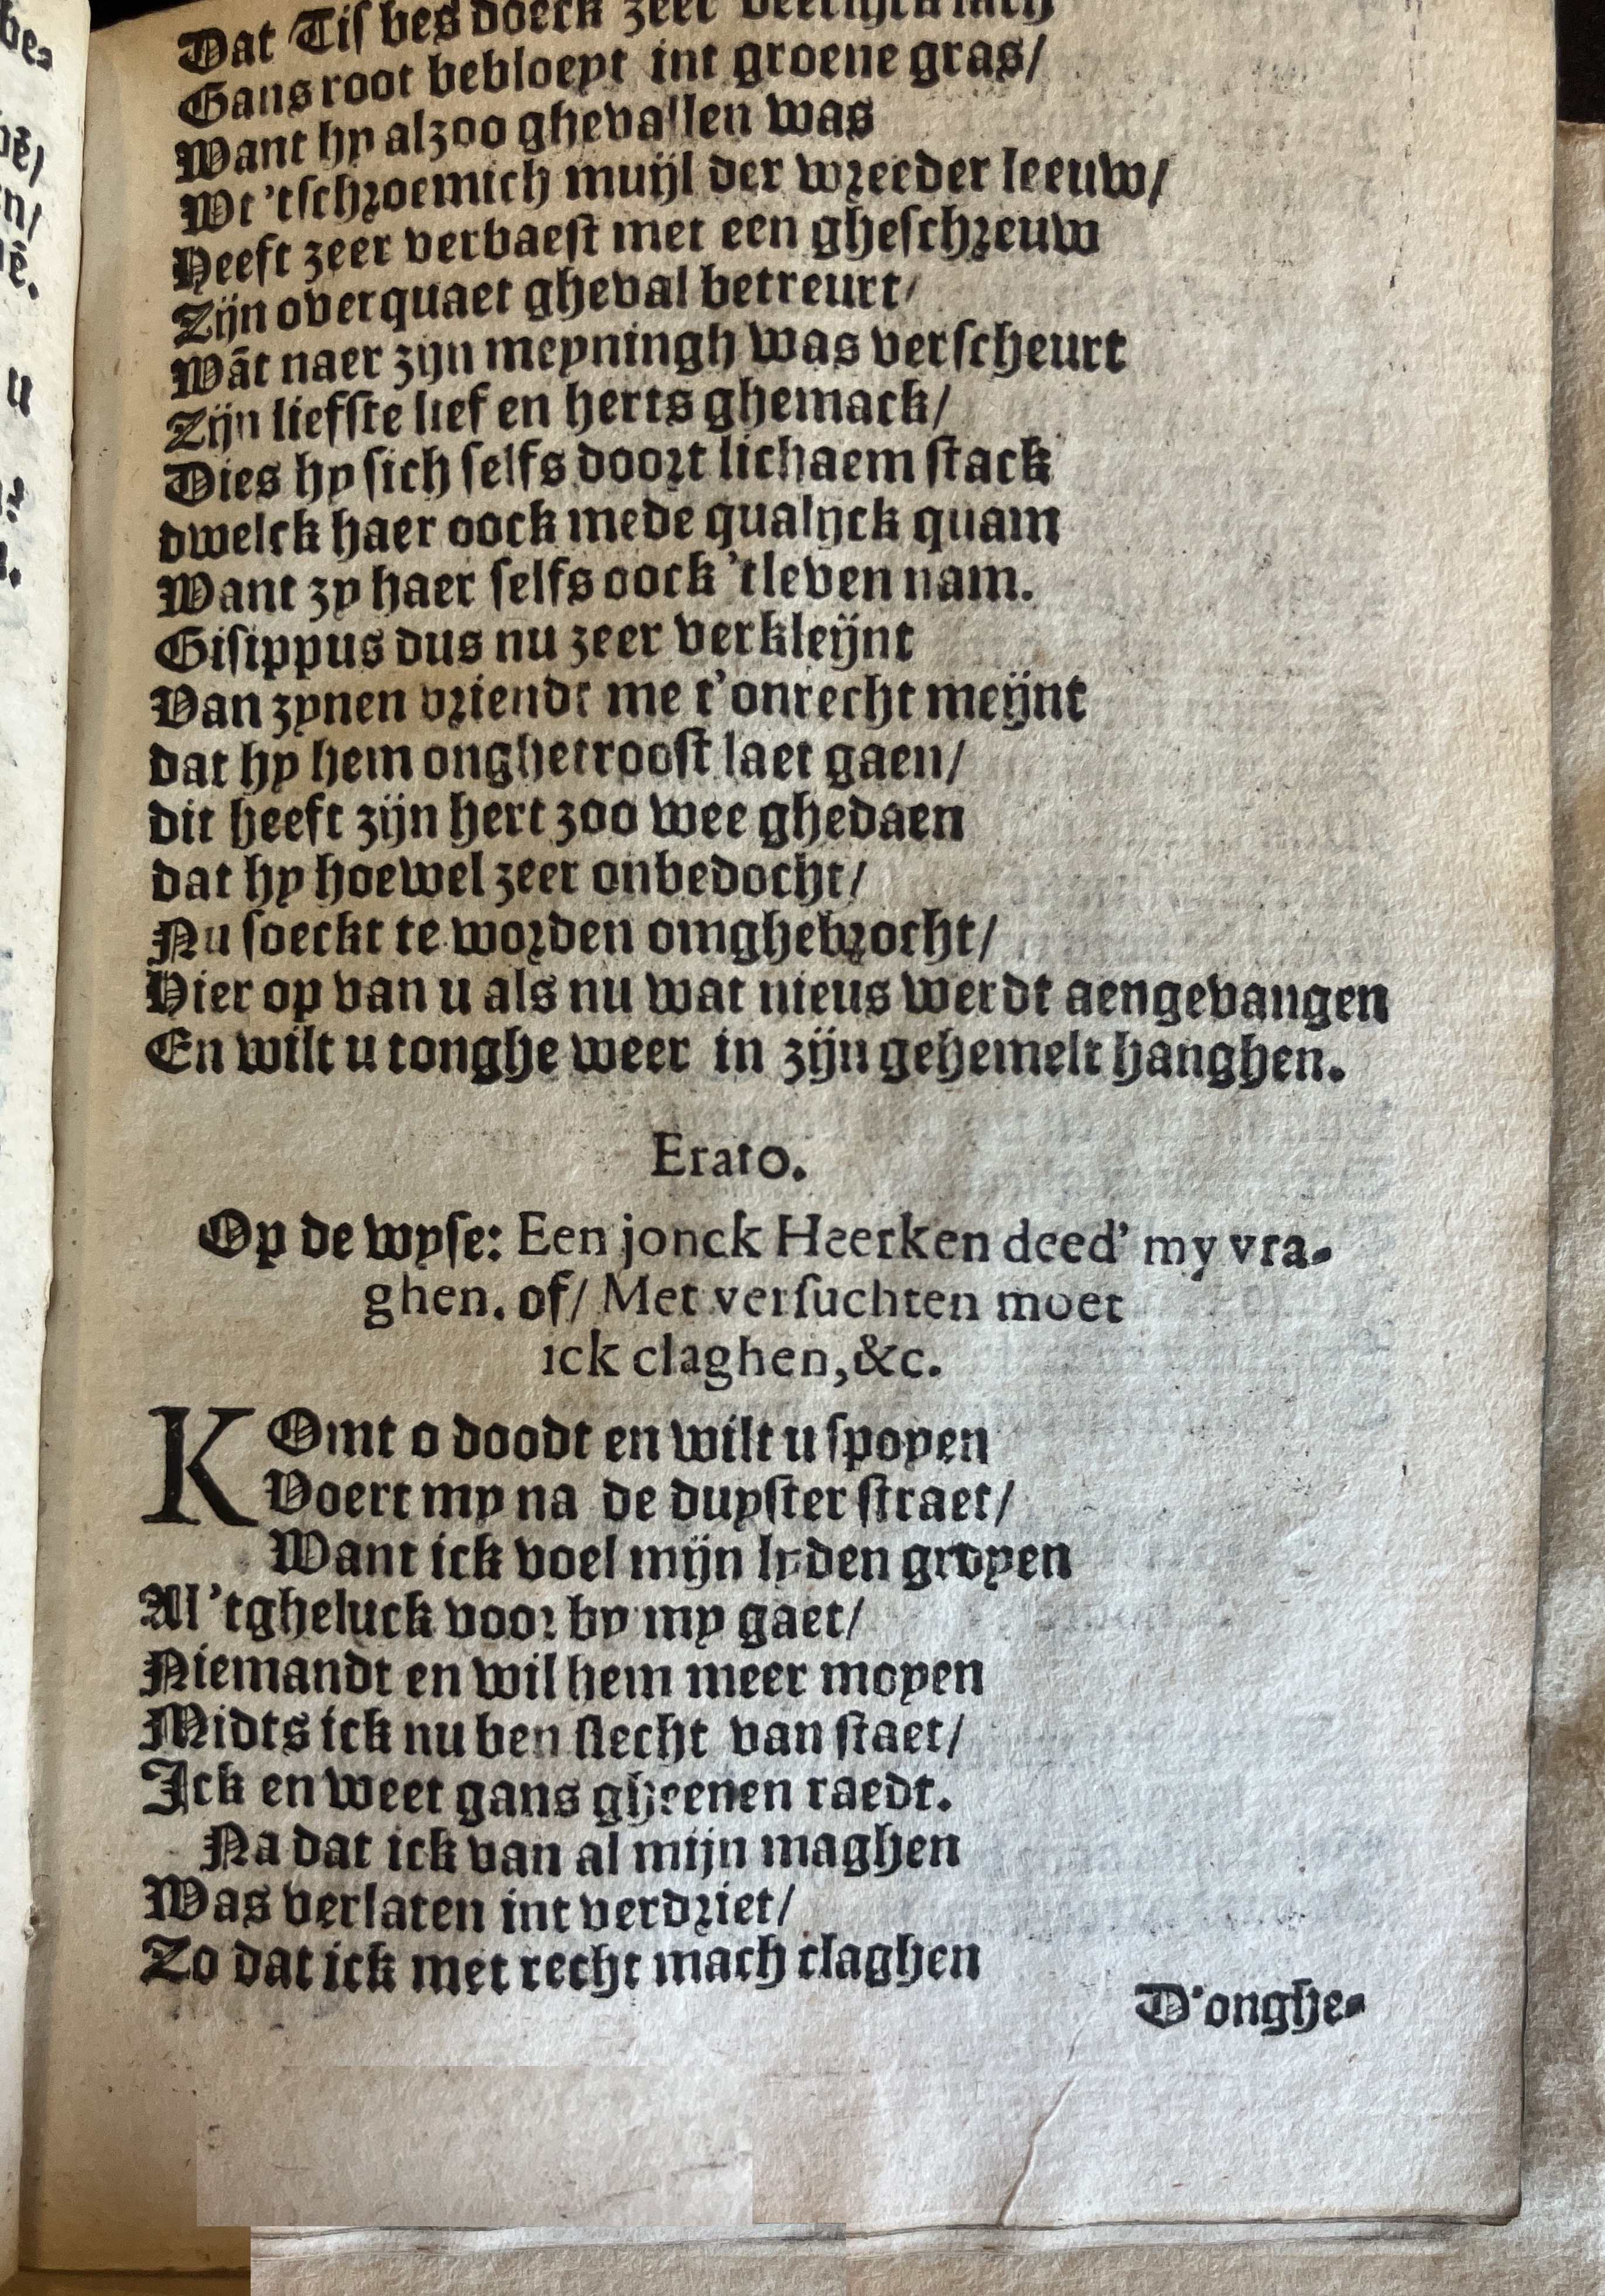 Dat Tisbes doeck zeer
Gans root bebloeyt int groene gras/
Want hy alzoo ghevallen was
Wt 'tschroemich muijl der wreeder leeuw/
Heeft zeer verbaest met een gheschreuw
Zijn overquaet gheval betreurt/
Wāt naer zijn meyningh was verscheurt
Zijn liefste lief en herts ghemack/
Dies hy sich selfs doort lichaem stack
dwelck haer oock mede qualijck quam
Want zy haer selfs oock 'tleven nam.
Gisippus dus nu zeer verkleijnt
Van zynen vriendt me t'onrecht meijnt
dat hy hem onghetroost laet gaen/
dit heeft zijn hert zoo wee ghedaen
dat hy hoewel zeer onbedocht/
Nu soeckt te worden omghebrocht/
Hier op van u als nu wat nieus werdt aengevangen
En wilt u tonghe weer in zijn gehemelt hanghen.
Erato.
Op de wyse: Een jonck Heerken deed' my vra-
ghen. of/ Met versuchten moet
ick claghen, &c.
KOmt o doodt en wilt u spoyen
Voert my na de duyster straet/
Want ick voel mijn lyden groyen
Al 'tgheluck voor by my gaet/
Niemandt en wil hem meer moyen
Midts ick nu ben slecht van staet/
Ick en weet gans gheenen raedt.
Na dat ick van al mijn maghen
Was verlaten int verdriet/
Zo dat ick met recht mach claghen
D'onghe-